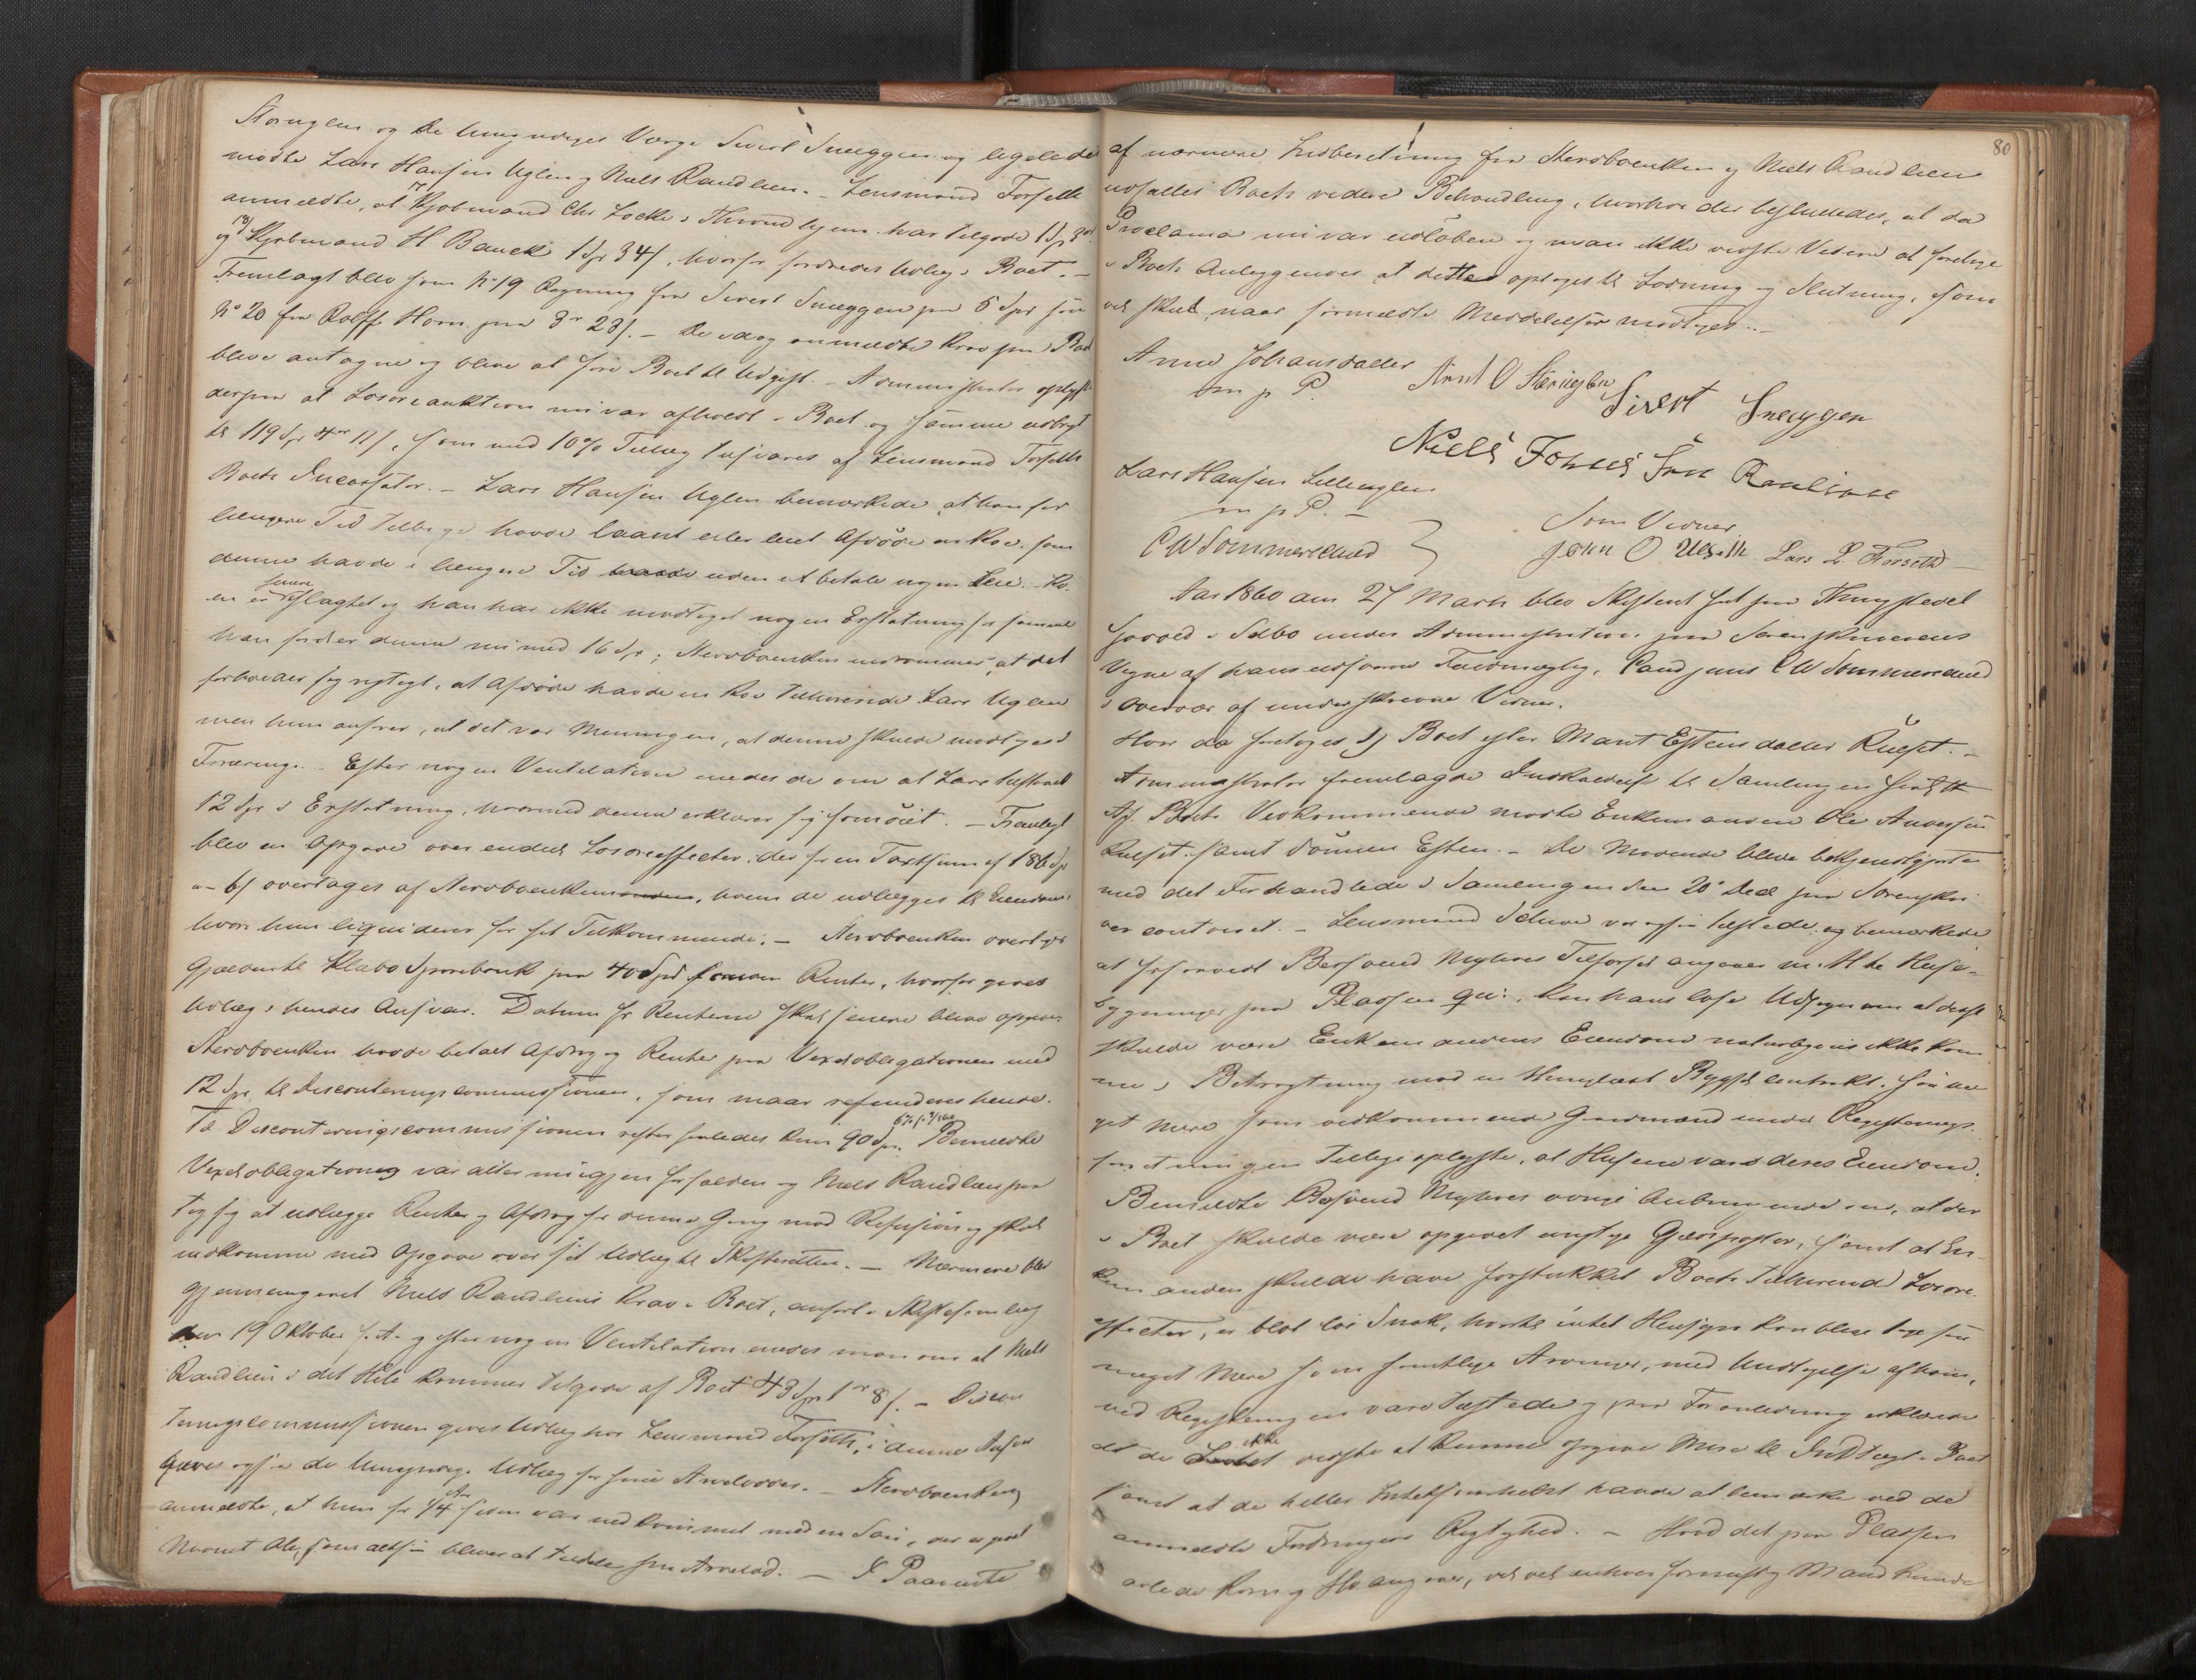 Storuglen og de Umyndiges Værge Sivert Sneeggen og ligeledes
mødte Lars Hansen Uglen og Niels Randlien. - Lensmand Forseth
anmeldte, at Kjøbmand Chr Locke i Throndhjem har tilgode 1 Spd
og Kjøbmand H Bauck 1 Spd 34 s, hvorfor fordredes Udlæg i Boet. -
Fremlagt blev som No 19 Regning fra Sivert Sneeggen paa 5 Spd samt
No 20 fra Rolff Horn paa 3 ort 23 s. - De idag anmeldte Krav paa Boet
bleve antagne og blive at føre Boet til Udgift. - Administrator oplyste
derpaa at Løsøreauktion nu var afholdt i Boet og samme udbragt
til 119 Spd 4 ort 11 s, som med 10% Tillæg tilsvares af Lensmand Forseth
Boets Incassator. - Lars Hansen Uglen bemærkede, at han for
længere Tid tilbage havde laant eller leiet Afdøde en Koe, som
denne havde i længere Tid uden at betale nogen Leie. Ko-
en er senere slagtet og han har ikke modtaget nogen Erstatning for samme
han fordrer denne nu med 16 Spd; Stervboenken indrømmer, at det
forholder sig rigtigt, at Afdøde havde en Koe tilhørende Lars Uglen
men hun anfører, at det var Meningen, at denne skulde modtages i
Foræring. - Efter nogen Ventilation enedes de om at Lars tilstaaes
12 Spd i Erstatning, hvormed denne erklærer sig fornøiet. - Fremlagt
blev en Opgave over endeel Løsøreeffecter, der for en Taxtsum af 186 Spd
" - 6 s overtages af Stervboenken, hvem de udlægges til Eiendom
hvorn hun liqviderer for sit Tilkommende. - Stervboenken overtager
Gjælden til Klæbo Sparebank paa 40 Spd foruden Renter, hvorfor gives
Udlæg i hendes Ansvar. Datum for Renterne skal senere blive opgivet.
Stervboenken havde betalt Afdrag og Renter paa Vexelobligationen med
12 Spd til Disconteringscommissionen, som maa refunderes hende.
Til Disconteringscommissionen rester saaledes kun 90 Spd. Bemeldte
Vexelobligation var atter nu igjen forfalden og Niels Randlien paa
tog sig at udlægge Renter og Afdrag for denne Gang mod Refusion og skal
indkomme med Opgave over sit Udlæg til Skifteretten. - Nærmere blev
gjennemgaaet Niels Randliens Krav i Boet, anført i Skiftesamling
den 19 Oktober f. A. og efter nogen Ventilation enedes man om at Niels
Randlien i det Hele kommer tilgode af Boet 43 Spd 1 ort 8 s. - Discon
teringscommissionen gives Udlæg hos Lensmand Forseth, i dennes Ansvar
gives ogsaa de Umyndige Udlæg for sine Arvelodder. - Stervboenken
anmeldte, at hun for 1/4 Aar siden var nedkommet med en Søn, der er given
Navnet Ole, som altsaa bliver at tildele sin Arvelod. - I Paavente
80
af nærmere Indberetning fra Stervboenken og Niels Randlien
udsattes Boets videre Behandling, hvorhos der besluttedes, at da
Proclama nu var udløben og man ikke vidste Videre at foretage
i Boets Anliggender, at dette optages til Lodning og Slutning, som
vil skee, naar formeldte Meddelelser modtages. -
Anne Johansdatter
m p P.
Arnt O Storuglen
Sivert Sneeggen
Niels Johns Søn Ranlien
Lars Hansen Lilleuglen
m p P. -
Som Vidner
CW Sommerschield
John O Uthsith Lars L. Forseth
Aar 1860 den 27 Marts blev Skifteret sat paa Thingstedet
Garved i Selbo under Administration paa Sorenskriverens
Vegne af hans edsvorne Fuldmægtig, Cand juris CW Sommerschield
i Overvær af underskrevne Vidner.
Hvor da foretoges 1) Boet efter Marit Estensdatter Kulset. -
Administrator fremlagde Indkaldelse til Samlingen
Af Boets Vedkommende mødte Enkemanden Ole Andersen
Kulset samt Sønnen Esten. - De Mødende bleve bekjendtgjorte
med det Forhandlede i Samlingen den 20de Decbr paa Sorenskri
vercontoiret. - Lensmand Schive var ogsaa tilstede og bemærkede,
at forsaavidt Berfvend Myhres Tilførsel angaaer m. H. t. Huse-
bygninger paa Pladsen qu:, kan hans løse Udsagn om at disse
skulde være Enkemandens Eiendom naturligviis ikke kom
me i Betragtning mod en thinglæst Bygselcontrakt, saa me
get mere som vedkommende Gaardmand under Registrerings-
forretningen tillige oplyste, at Husene vare deres Eiendom.
Bemeldte Berfvend Myhres øvrige Anbringende om, at der
i Boet skulde være opgivet urigtige Gjeldsposter, samt at En
kemanden skulde have forstukket Boets tilhørende Løsøre
effecter, er blot løs Snak, hvortil intet Hensyn kan blive taget saa
meget mere som samtlige Arvinger, med Undtagelse af ham,
ved Registreringen vare tilstede og paa Foranledning erklærede
at de ikke vidste at kunne opgive Mere til Indtægt i Boet
samt at de heller Intetsomhelst havde at bemærke ved de
anmeldte Fordringers Rigtighed. - Hvad det paa Pladsen
avlede Korn og Hø angaaer, vil vel enhver fornuftig Mand kunde